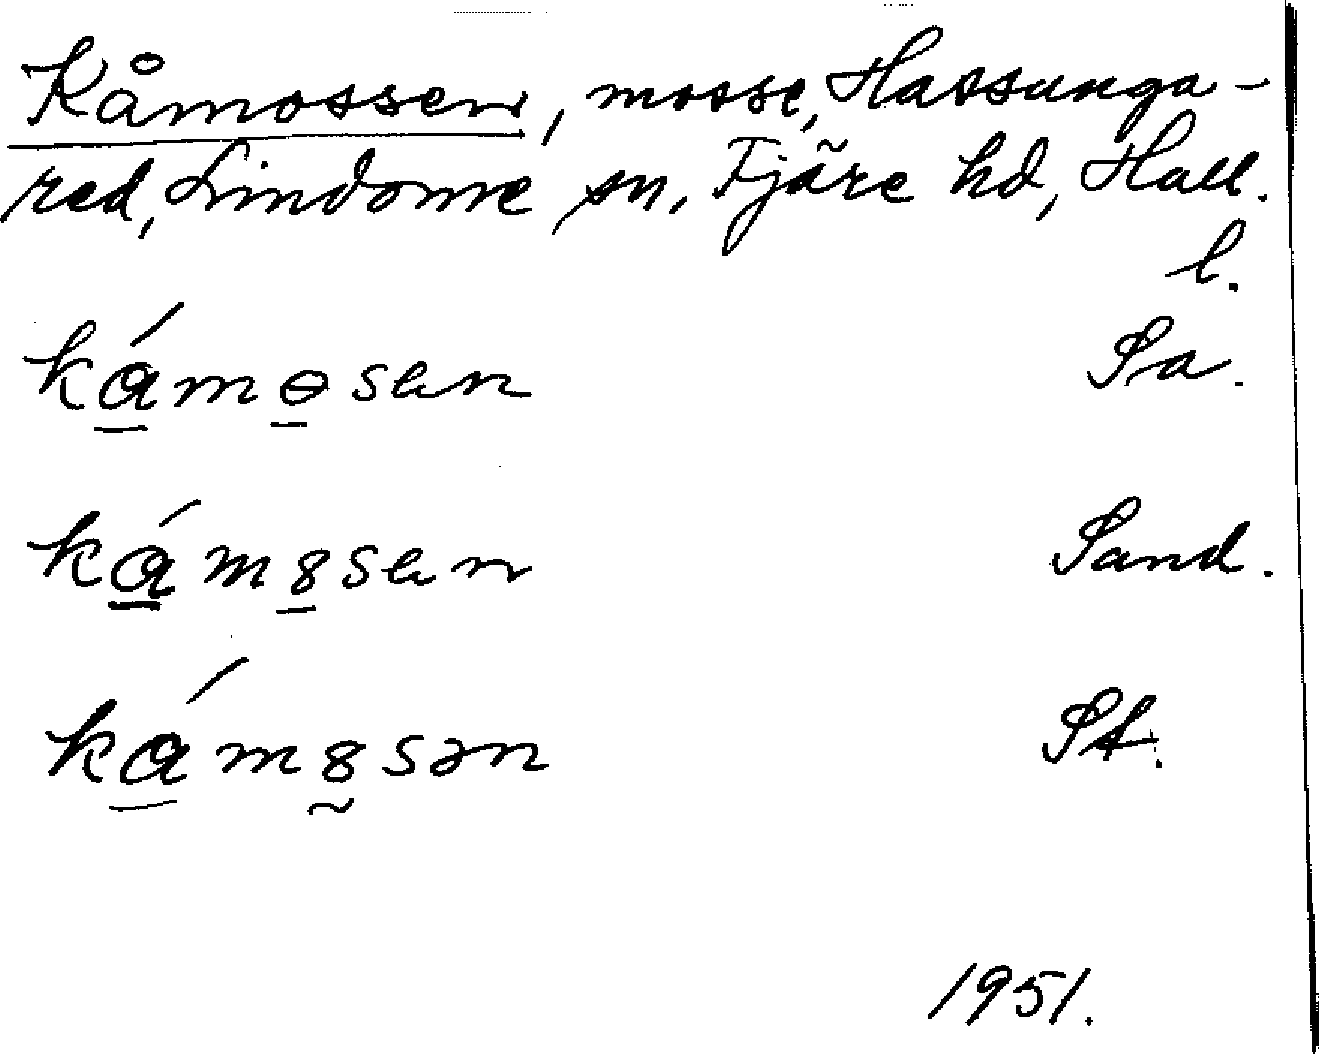 Kåmossen, mosse, Hassunga-
red, Lindome sn, Fjäre hd, Hall.
l.
ká̱mɵ̱sen Sa.
ká̱m8̱sen Sand.
ká̱m8̰sən St.
1951.